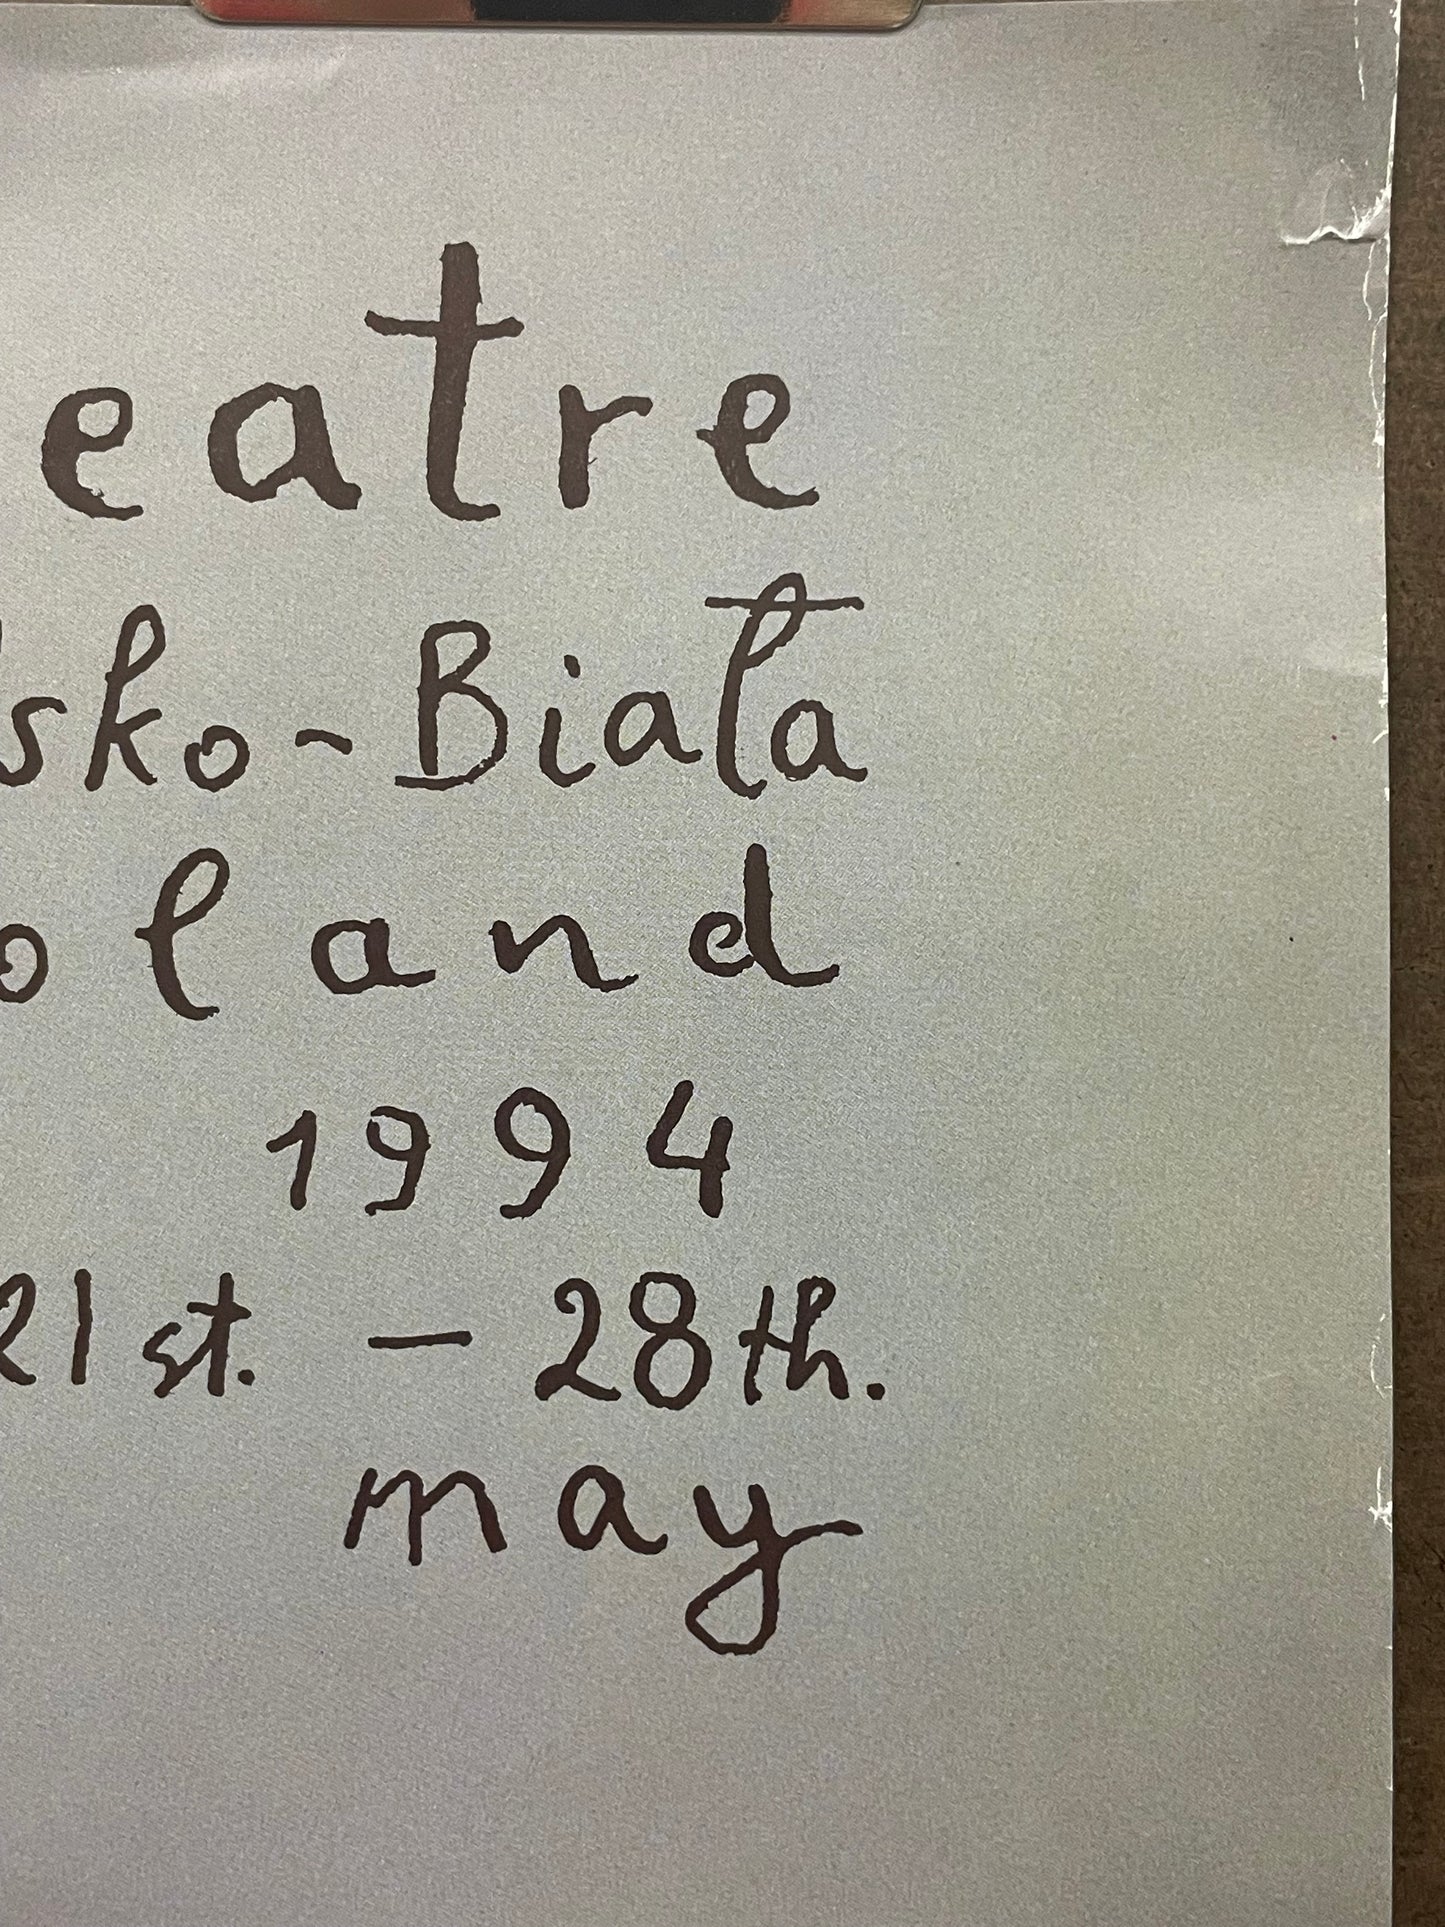 eatre
sko-Biała
oland
1994
21st. – 28th.
may